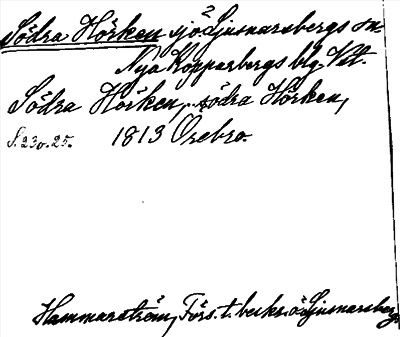 Södra Hörken sjö Ljusnarsbergs sn
Nya Kopparbergs blg. Vstm.
Södra Hörken, södra Hörken,
S. 230. 25. 1813 Örebro.
Hammarström, Förs. t. beskr. ö. Ljusnarsberg